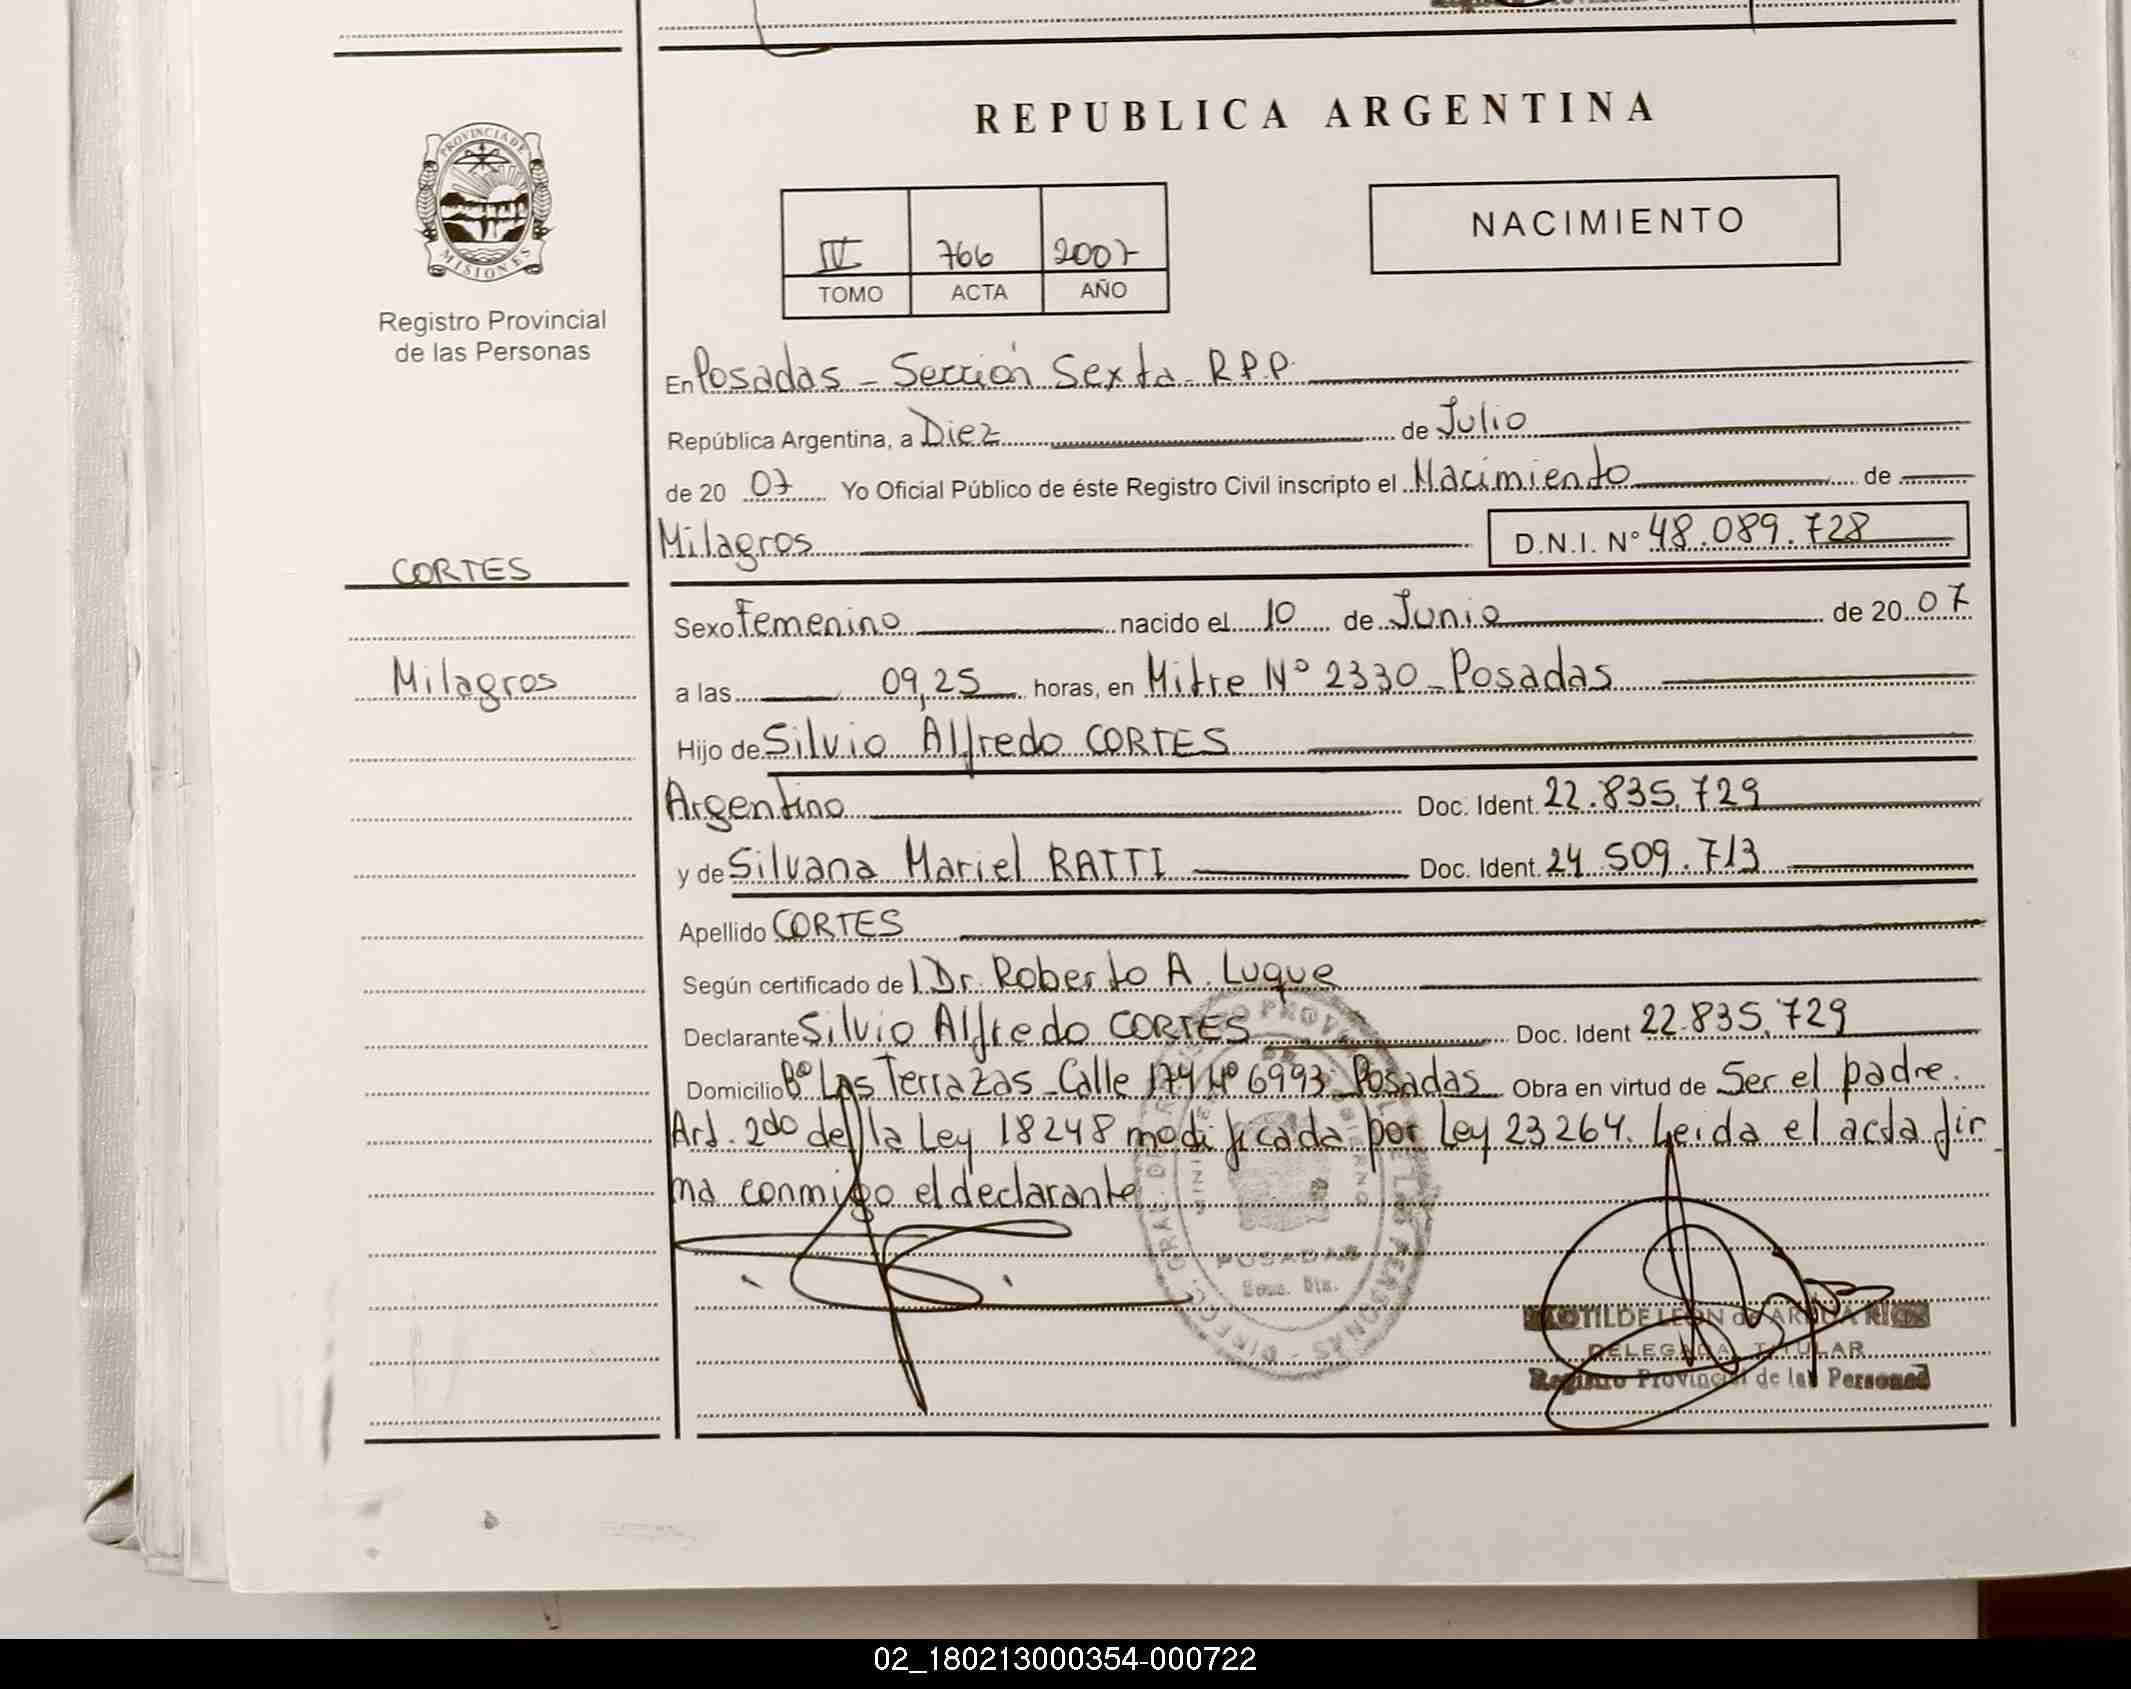 REPUBLICA ARGENTINA
PROVINCIA DE
MISIONES
Registro Provincial
de las Personas
IV 766 2007
TOMO ACTA AÑO
NACIMIENTO
En Posadas - Sección Sexta - R.P.P.
República Argentina, a Diez de Julio
de 20 07 Yo Oficial Público de éste Registro Civil inscripto el Nacimiento de
Milagros D.N.I. Nº 48.089.728
CORTES
Sexo Femenino nacido el 10 de Junio de 20 07
Milagros
a las 09,25 horas, en Mitre Nº 2330 - Posadas
Hijo de Silvio Alfredo CORTES
Argentino Doc. Ident. 22.835.729
y de Silvana Mariel RATTI Doc. Ident. 24.509.713
Apellido CORTES
Según certificado de l Dr. Roberto A. Luque
Declarante Silvio Alfredo CORTES Doc. Ident 22.835.729
Domicilio Bº Las Terrazas - Calle 174 Nº 6993 Posadas Obra en virtud de Ser el padre.
Art. 2do de la Ley 18248 modificada por Ley 23264. Leida el acta fir
ma conmigo el declarante
POSADAS
DELEGADA TITULAR
Registro Provincial de las Personas
02_180213000354-000722